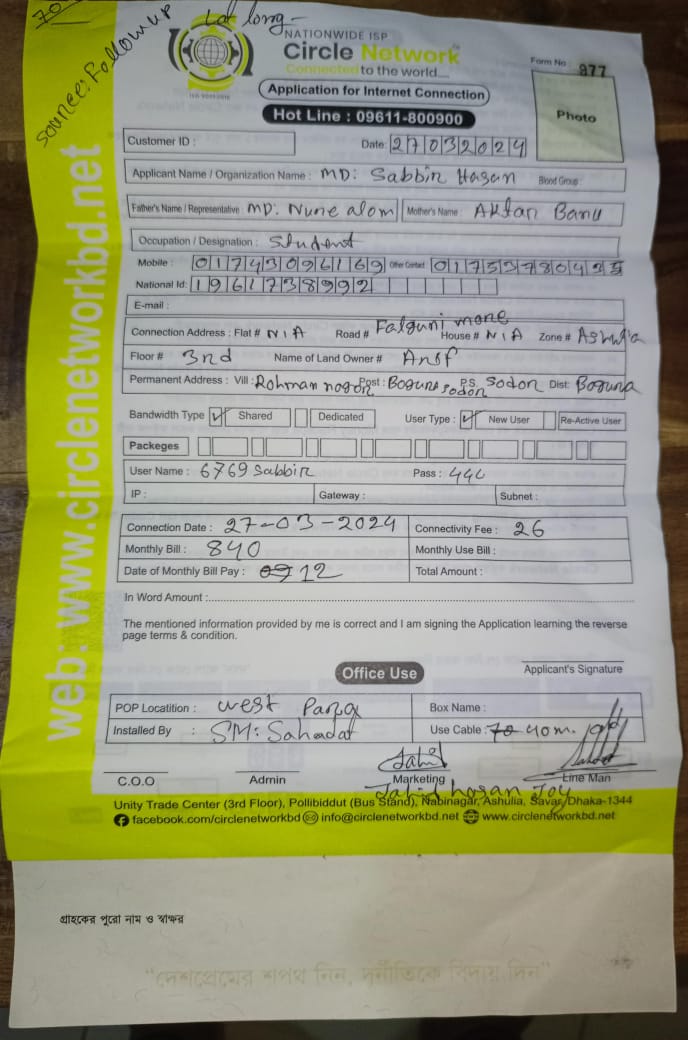 Source: Follow up
Lat long -
NATIONWIDE ISP
Circle Network
Connected to the world....
Form No 977
Application for Internet Connection
Photo
Hot Line : 09611-800900
Customer ID :
Date: 27032024
Applicant Name / Organization Name : MD: Sabbir Hasan Blood Group :
Father's Name / Representative MD: Nure alom Mother's Name : Aktar Banu
Occupation / Designation : Student
Mobile : 01743096169 Other Contact
National Id: 1961738992
E-mail :
Connection Address : Flat # N/A Road # Falguni House # N/A Zone # Ashulia
Floor # 3rd Name of Land Owner #
Permanent Address : Vill : Rohman nogor Post : Bogura sodor P.S. sodor Dist: Bogura
Bandwidth Type Shared Dedicated User Type : New User Re-Active User
Packeges
User Name : 6769 sabbir Pass :
IP : Gateway : Subnet :
Connection Date : 27-03-2024 Connectivity Fee : 26
Monthly Bill : 840 Monthly Use Bill :
Date of Monthly Bill Pay : 12 Total Amount :
In Word Amount :
The mentioned information provided by me is correct and I am signing the Application learning the reverse
page terms & condition.
Applicant's Signature
Office Use
POP Locatition : west Box Name :
Installed By : SM: Sahadat Use Cable : 40m.
C.O.O Admin Marketing Line Man
Jahid hasan Joy
Unity Trade Center (3rd Floor), Pollibiddut (Bus Stand), Nabinagar, Ashulia, Savar, Dhaka-1344
facebook.com/circlenetworkbd info@circlenetworkbd.net www.circlenetworkbd.net
web: www.circlenetworkbd.net
গ্রাহকের পুরো নাম ও স্বাক্ষর
"দেশপ্রেমের শপথ নিন, দুর্নীতিকে বিদায় দিন"